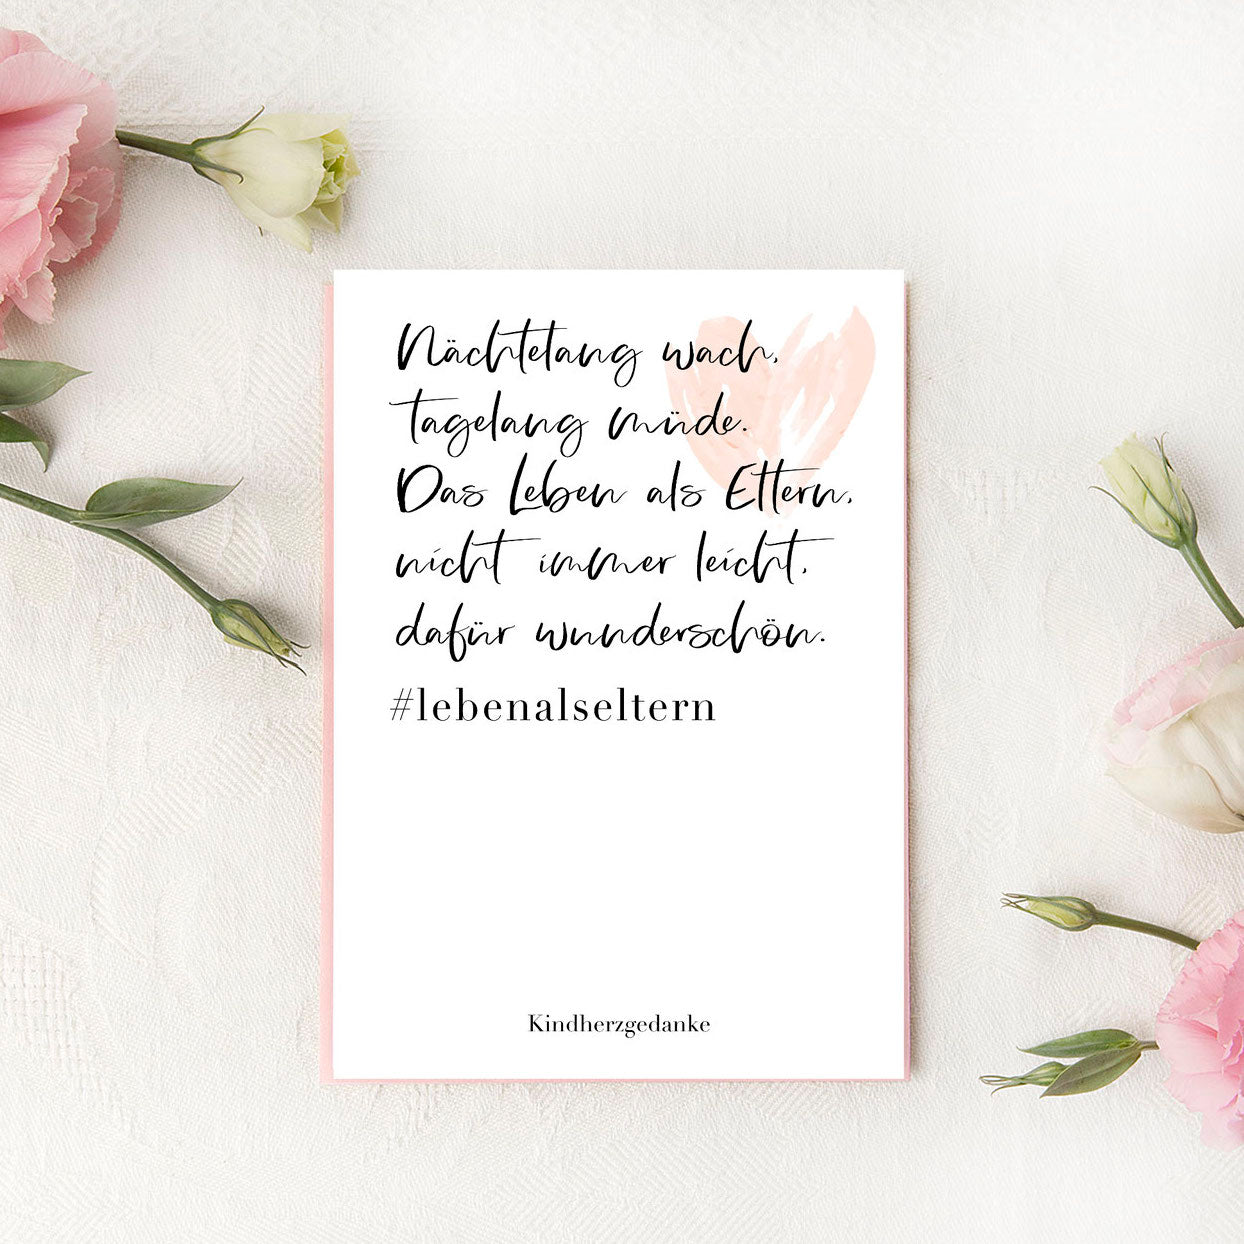 Nächtelang wach,
tagelang müde.
Das Leben als Eltern,
nicht immer leicht,
dafür wunderschön.
#lebenalseltern
Kindherzgedanke